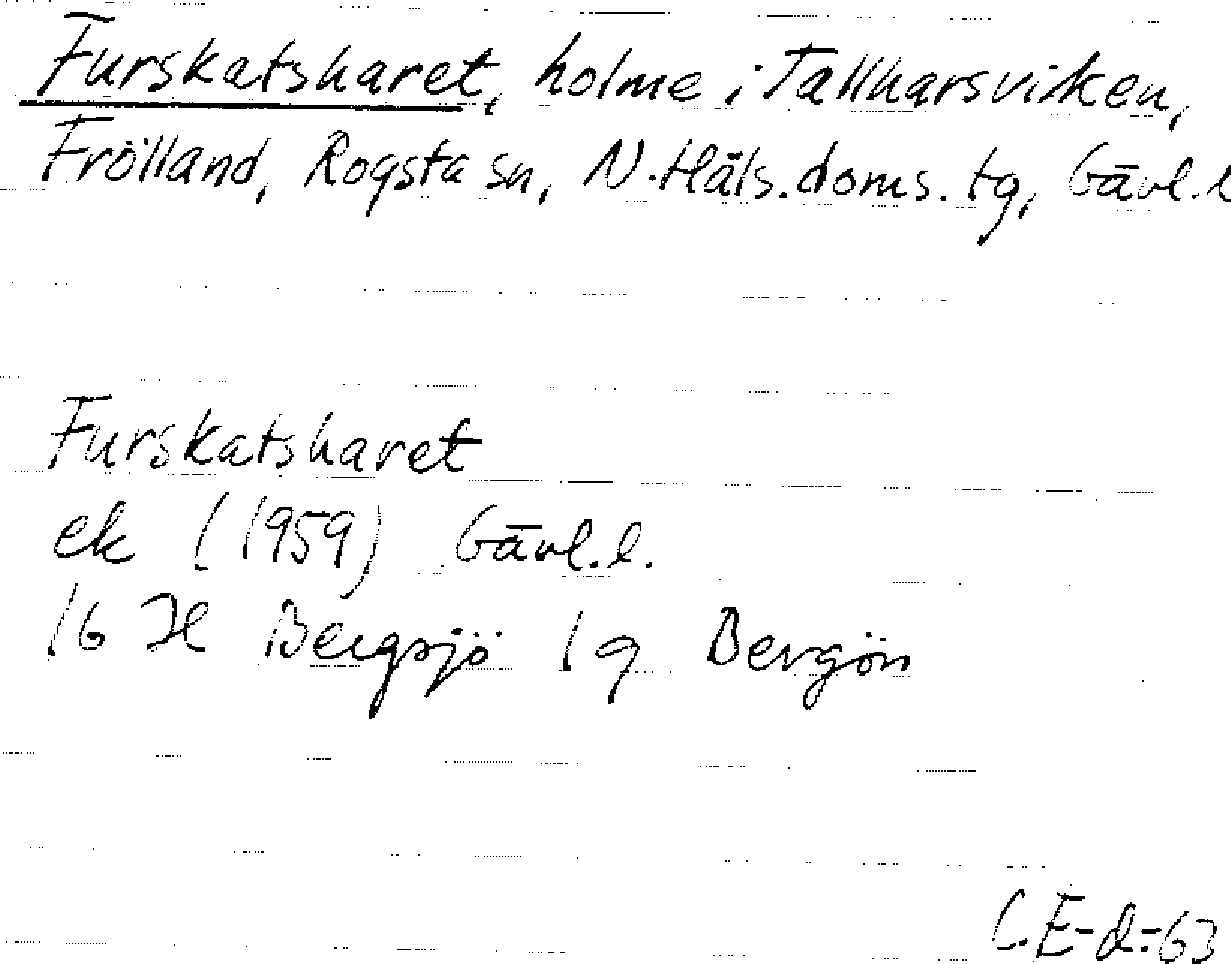 Furskatsharet, holme i Tallharsviken,
Frölland, Rogsta sn, N. Häls. doms. tg, Gävl. l
Furskatsharet
ek (1959) Gävl. l.
16 H Bergsjö 1 g Bergön
C. E-d.-63